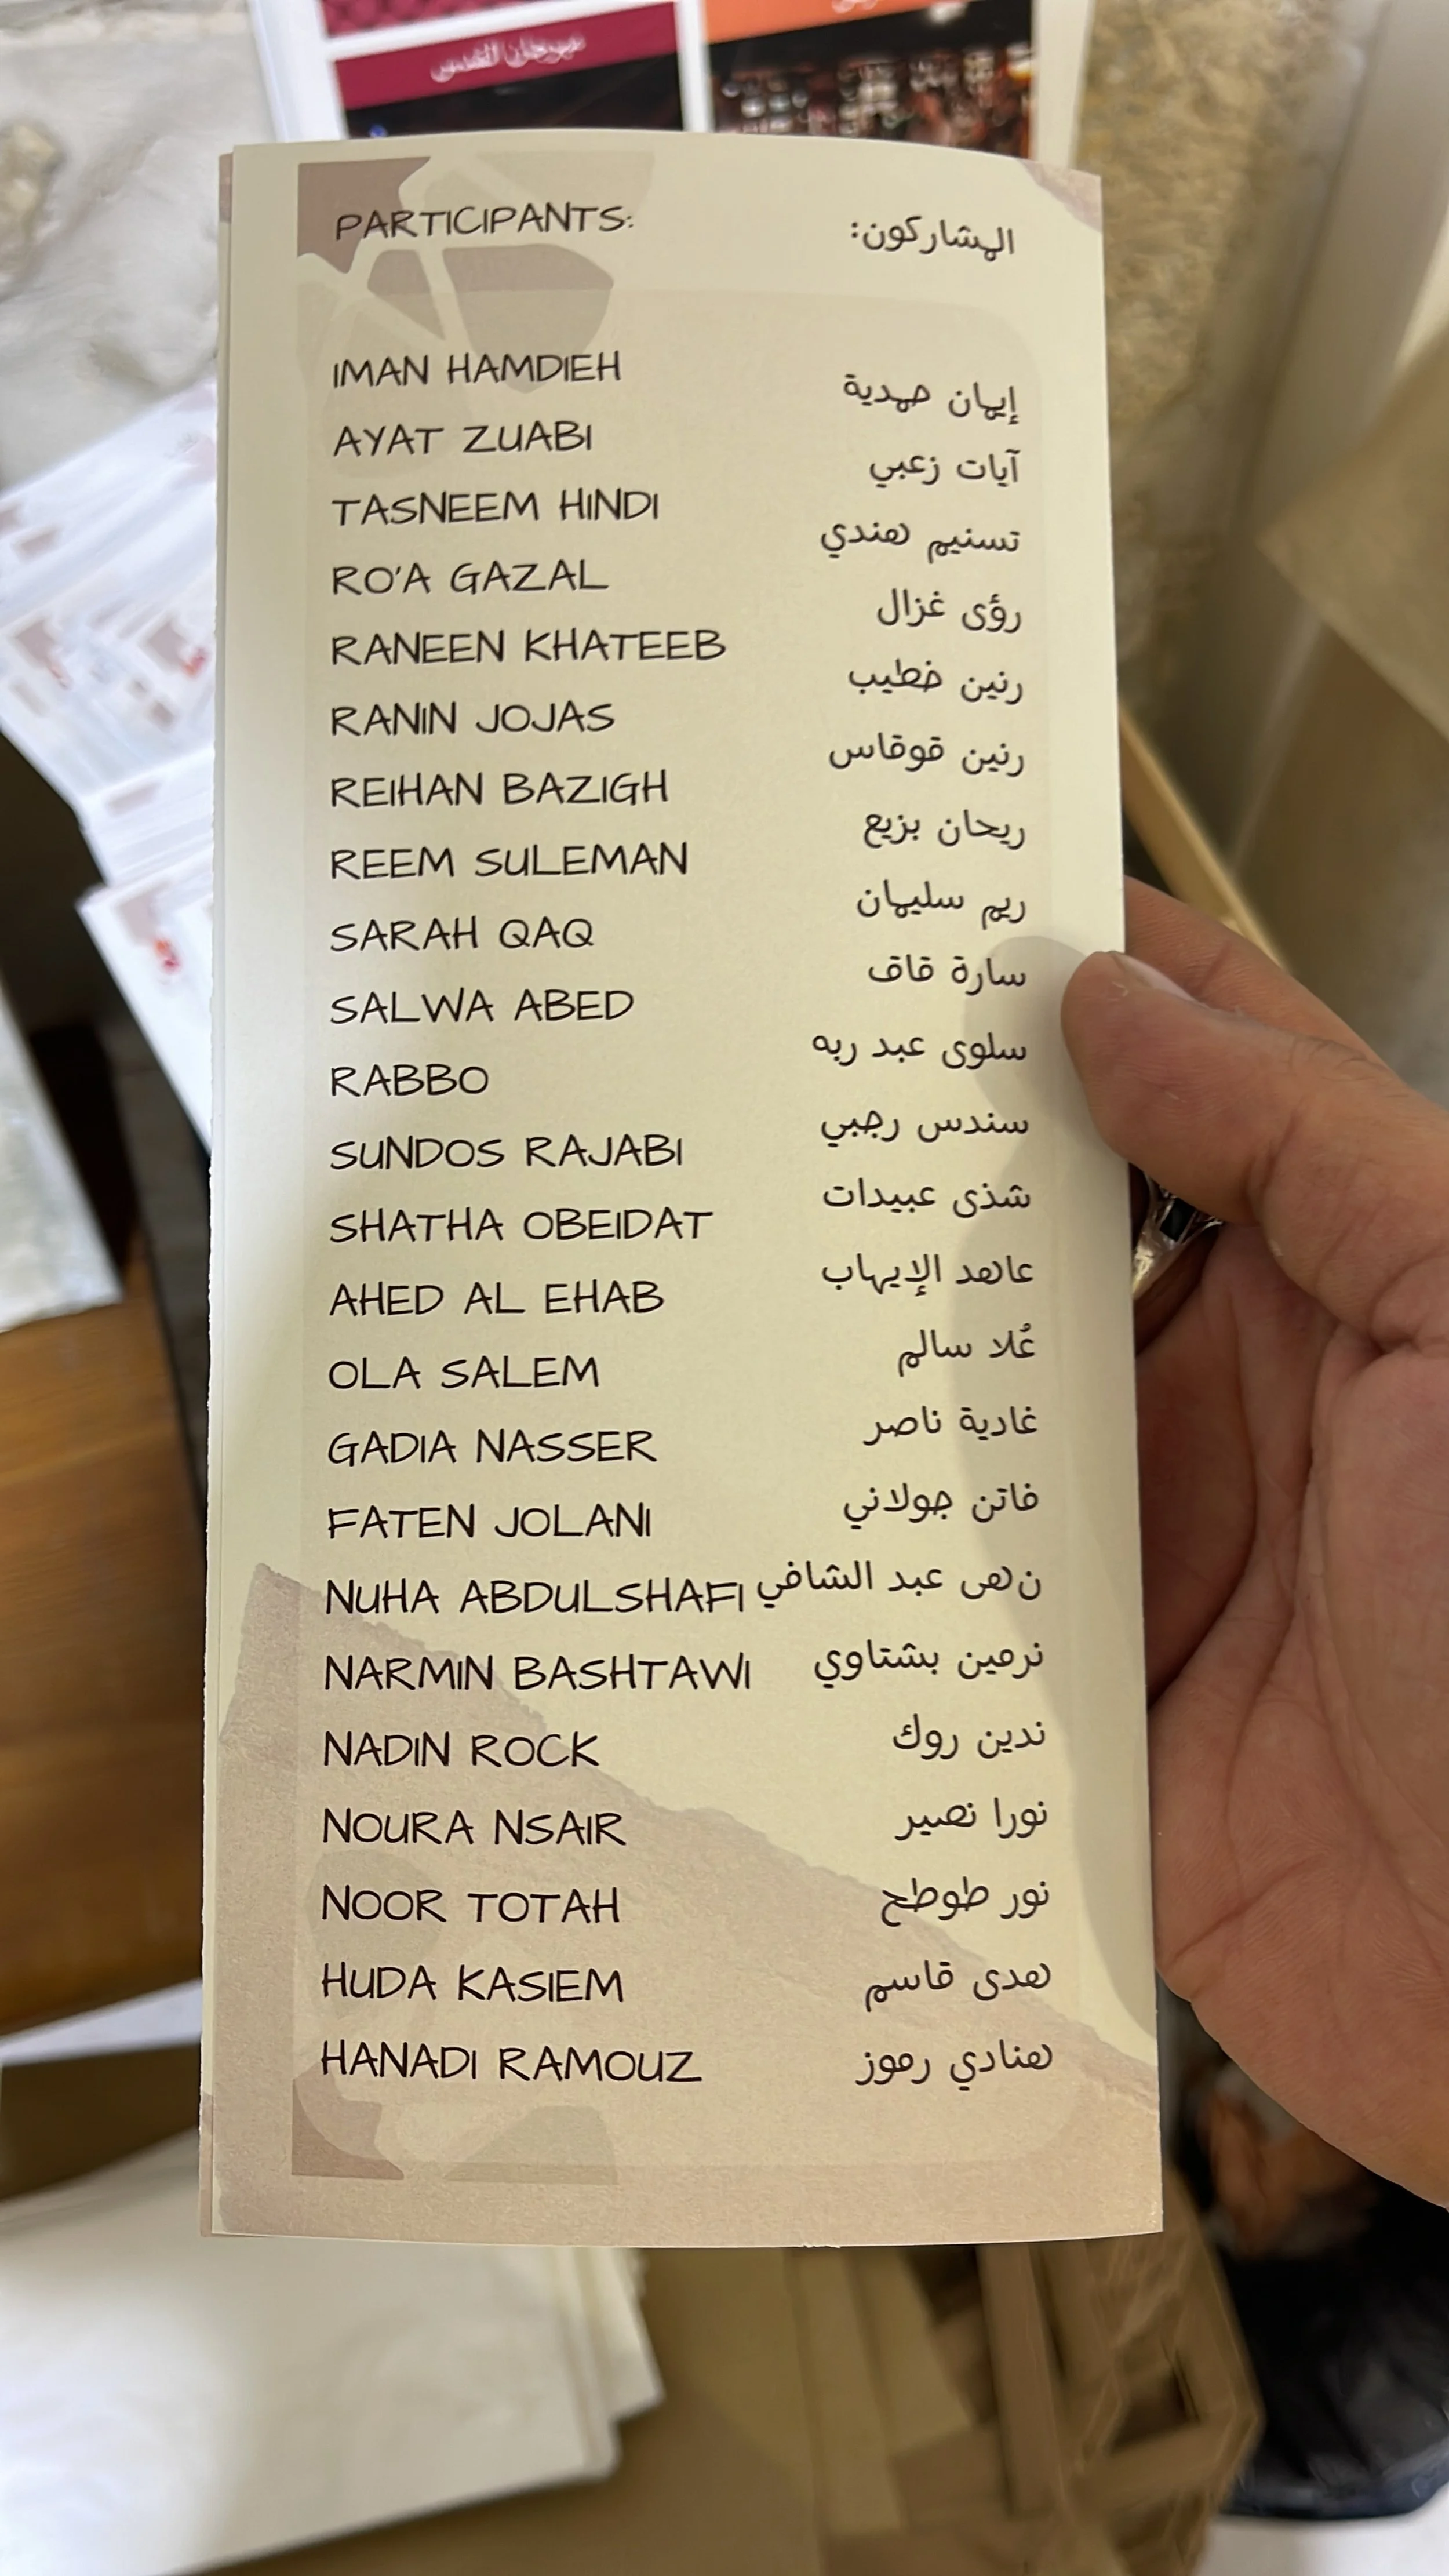 مهرجان القدس
PARTICIPANTS:
IMAN HAMDIEH
AYAT ZUABI
TASNEEM HINDI
RO'A GAZAL
RANEEN KHATEEB
RANIN JOJAS
REIHAN BAZIGH
REEM SULEMAN
SARAH QAQ
SALWA ABED
RABBO
SUNDOS RAJABI
SHATHA OBEIDAT
AHED AL EHAB
OLA SALEM
GADIA NASSER
FATEN JOLANI
NUHA ABDULSHAFI
NARMIN BASHTAWI
NADIN ROCK
NOURA NSAIR
NOOR TOTAH
HUDA KASIEM
HANADI RAMOUZ
المشاركون:
إيمان حمدية
آيات زعبي
تسنيم هندي
رؤى غزال
رنين خطيب
رنين قوقاس
ريحان بزيع
ريم سليمان
سارة قاق
سلوى عبد ربه
سندس رجبي
شذى عبيدات
عاهد الإيهاب
عُلا سالم
غادية ناصر
فاتن جولاني
نهى عبد الشافي
نرمين بشتاوي
ندين روك
نورا نصير
نور طوطح
هدى قاسم
هنادي رموز